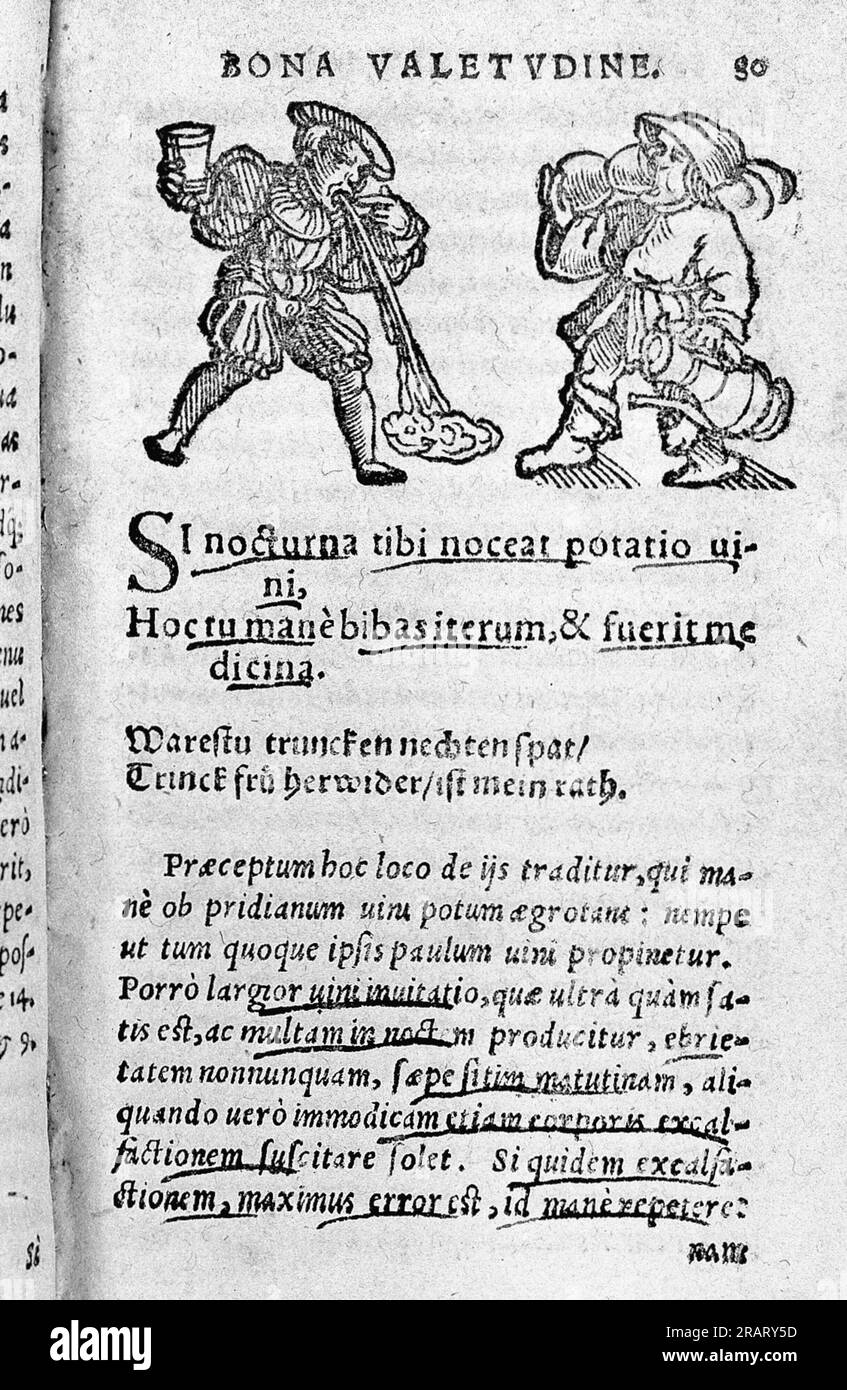 BONA VALETVDINE. 80
SI nocturna tibi noceat potatio ui-
ni,
Hoc tu manè bibas iterum, & fuerit me
dicina.
Warestu truncken nechten spat/
Trinck frů herwider/ist mein rath.
Præceptum hoc loco de ijs traditur, qui ma-
nè ob pridianum uini potum ægrotant: nempe
ut tum quoque ipsis paulum uini propinetur.
Porrò largior uini inuitatio, quæ ultrà quàm sa-
tis est, ac multam in noctem producitur, ebrie-
tatem nonnunquam, sæpe sitim matutinam, ali-
quando uerò immodicam etiam corporis excal-
factionem suscitare solet. Si quidem excalfa-
ctionem, maximus error est, id manè repetere:
nam
alamy
Image ID: 2RARY5D
www.alamy.com